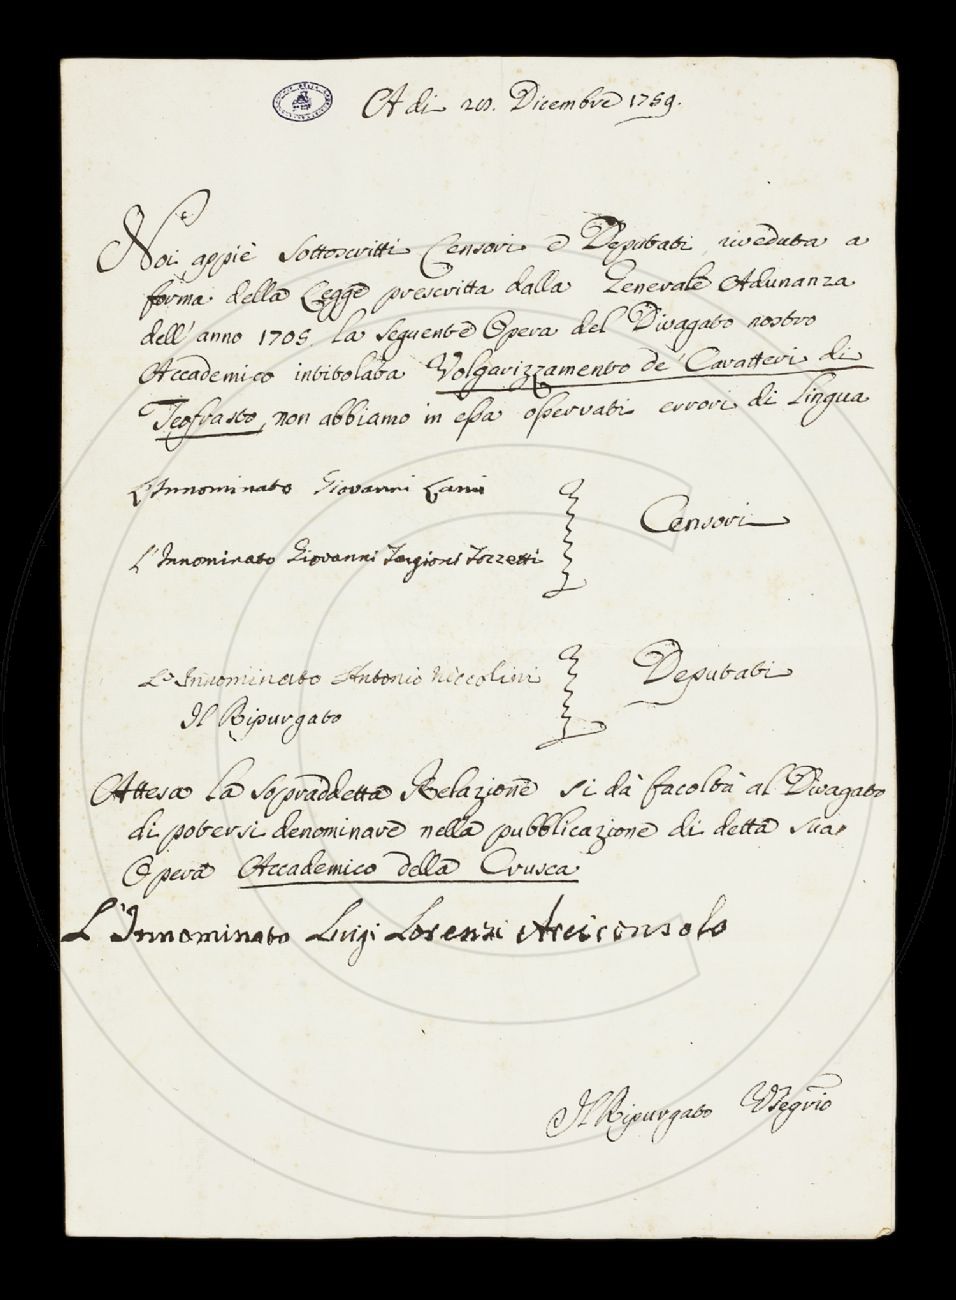 A di 20. Dicembre 1759.
Noi appiè Sottoscritti Censori e Deputati, riveduta a
forma della Legge prescritta dalla Generale Adunanza
dell'anno 1705. la seguente Opera del Divagato nostro
Accademico intitolata Volgarizzamento de' Caratteri di
Teofrasto, non abbiamo in essa osservati errori di Lingua
L'Innominato Giovanni Lami
Censori
L'Innominato Giovanni Targioni Tozzetti
L'Innominato Antonio Niccolini
Deputati
Il Ripurgato
Attesa la sopraddetta Relazione si dà facoltà al Divagato
di potersi denominare nella pubblicazione di detta sua
Opera Accademico della Crusca
L'Innominato Luigi Lorenzi Arciconsolo
Il Ripurgato Vsegrio